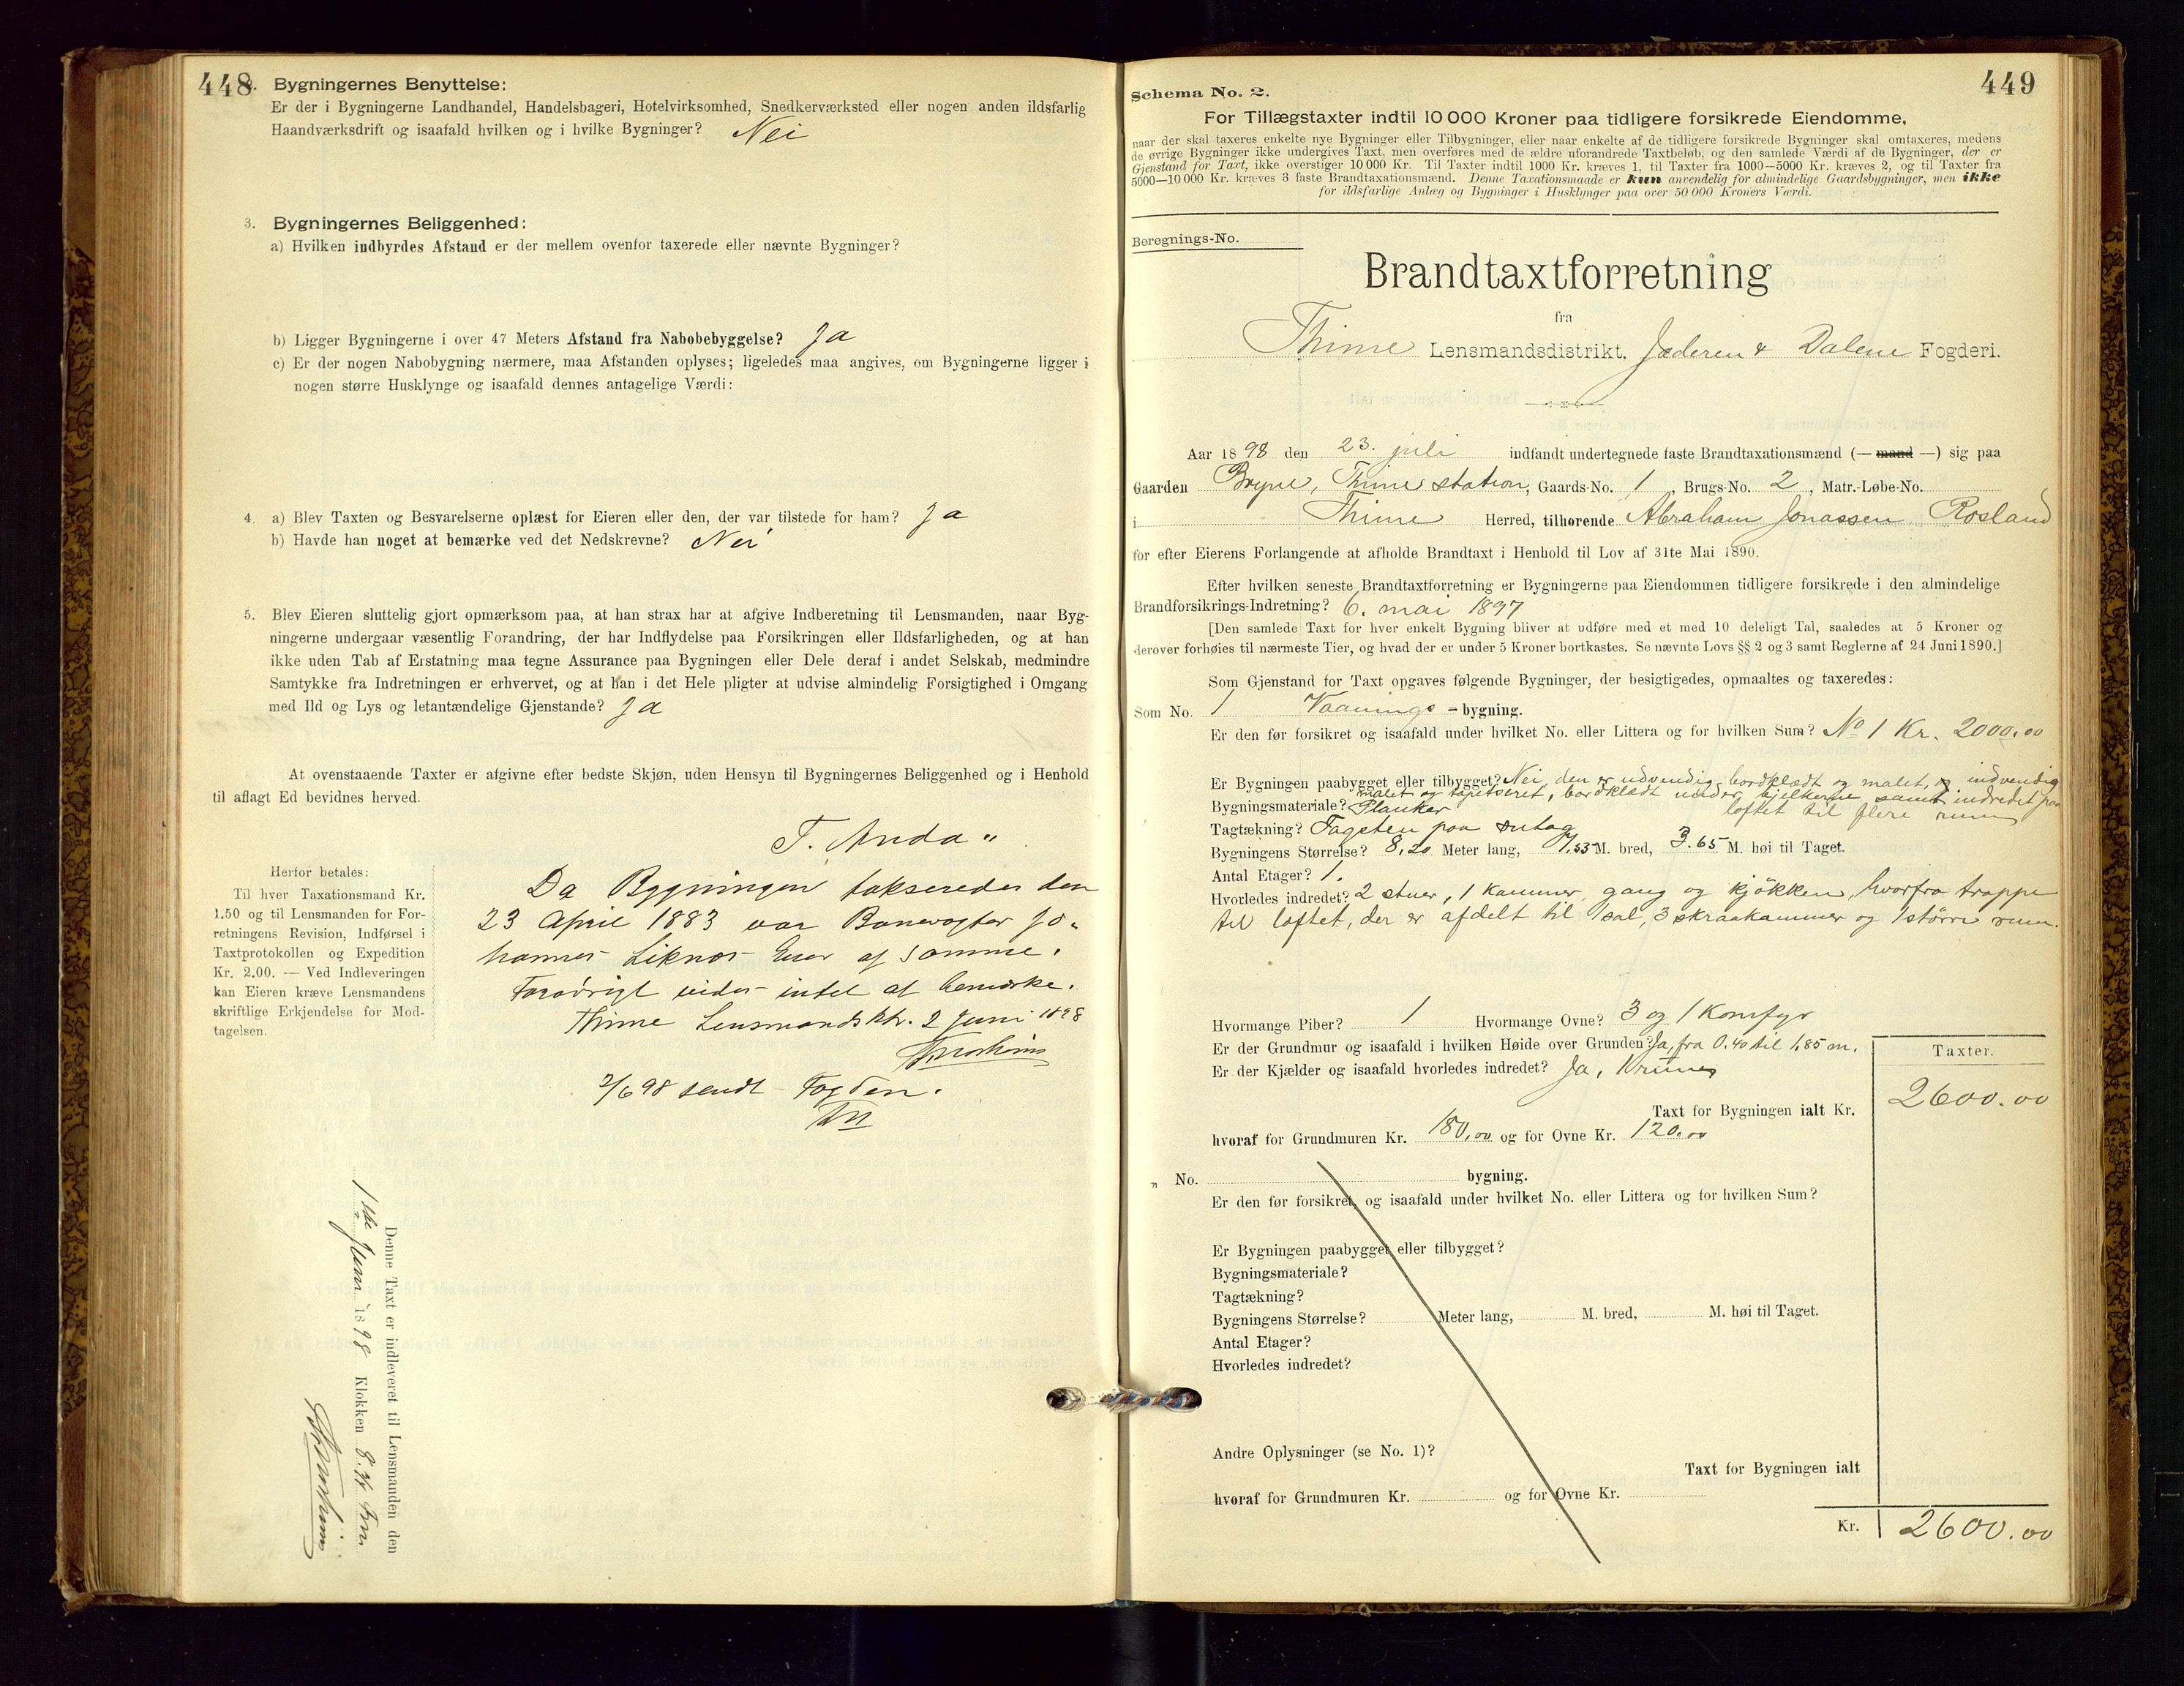 448.
Bygningernes Benyttelse:
Er der i Bygningerne Landhandel, Handelsbageri, Hotelvirksomhed, Snedkerværksted eller nogen anden ildsfarlig
Haandværksdrift og isaafald hvilken og i hvilke Bygninger? Nei
3. Bygningernes Beliggenhed:
a) Hvilken indbyrdes Afstand er der mellem ovenfor taxerede eller nævnte Bygninger?
b) Ligger Bygningerne i over 47 Meters Afstand fra Nabobebyggelse? Ja
c) Er der nogen Nabobygning nærmere, maa Afstanden oplyses; ligeledes maa angives, om Bygningerne ligger i
nogen større Husklynge og isaafald dennes antagelige Værdi:
4. a) Blev Taxten og Besvarelserne oplæst for Eieren eller den, der var tilstede for ham? Ja
b) Havde han noget at bemærke ved det Nedskrevne? Nei
5. Blev Eieren sluttelig gjort opmærksom paa, at han strax har at afgive Indberetning til Lensmanden, naar Byg-
ningerne undergaar væsentlig Forandring, der har Indflydelse paa Forsikringen eller Ildsfarligheden, og at han
ikke uden Tab af Erstatning maa tegne Assurance paa Bygningen eller Dele deraf i andet Selskab, medmindre
Samtykke fra Indretningen er erhvervet, og at han i det Hele pligter at udvise almindelig Forsigtighed i Omgang
med Ild og Lys og letantændelige Gjenstande? Ja
At ovenstaaende Taxter er afgivne efter bedste Skjøn, uden Hensyn til Bygningernes Beliggenhed og i Henhold
til aflagt Ed bevidnes herved.
T. Anda
Herfor betales:
Til hver Taxationsmand Kr.
1.50 og til Lensmanden for For-
retningens Revision, Indførsel i
Taxtprotokollen og Expedition
Kr. 2.00. — Ved Indleveringen
kan Eieren kræve Lensmandens
skriftlige Erkjendelse for Mod-
tagelsen.
Da Bygningen takseredes den
23 April 1883 var Banevogter Jo-
hannes Liknes Eier af samme.
Forøvrigt vides intet at bemærke.
Thime Lensmandsktr. 2 Juni 1898
2/6 98 sendt Fogden.
Denne Taxt er indleveret til Lensmanden den
1ste Juni 1898 Klokken 8
449
Schema No. 2.
For Tillægstaxter indtil 10 000 Kroner paa tidligere forsikrede Eiendomme,
naar der skal taxeres enkelte nye Bygninger eller Tilbygninger, eller naar enkelte af de tidligere forsikrede Bygninger skal omtaxeres, medens
de øvrige Bygninger ikke undergives Taxt, men overføres med de ældre uforandrede Taxtbeløb, og den samlede Værdi af de Bygninger, der er
Gjenstand for Taxt, ikke overstiger 10 000 Kr. Til Taxter indtil 1000 Kr. kræves 1, til Taxter fra 1000—5000 Kr. kræves 2, og til Taxter fra
5000—10 000 Kr. kræves 3 faste Brandtaxationsmænd. Denne Taxationsmaade er kun anvendelig for almindelige Gaardsbygninger, men ikke
for ildsfarlige Anlæg og Bygninger i Husklynger paa over 50 000 Kroners Værdi.
Beregnings-No.
Brandtaxtforretning
fra
Thime Lensmandsdistrikt, Jæderen & Dalene Fogderi.
Aar 1898 den 23. juli indfandt undertegnede faste Brandtaxationsmænd (— mand —) sig paa
Gaarden Bryne, Thime station, Gaards-No. 1, Brugs-No. 2, Matr.-Løbe-No.
i Thime Herred, tilhørende Abraham Jonassen Rosland
for efter Eierens Forlangende at afholde Brandtaxt i Henhold til Lov af 31te Mai 1890.
Efter hvilken seneste Brandtaxtforretning er Bygningerne paa Eiendommen tidligere forsikrede i den almindelige
Brandforsikrings-Indretning? 6. mai 1897
[Den samlede Taxt for hver enkelt Bygning bliver at udføre med et med 10 deleligt Tal, saaledes at 5 Kroner og
derover forhøies til nærmeste Tier, og hvad der er under 5 Kroner bortkastes. Se nævnte Lovs §§ 2 og 3 samt Reglerne af 24 Juni 1890.]
Som Gjenstand for Taxt opgaves følgende Bygninger, der besigtigedes, opmaaltes og taxeredes:
Som No. 1 Vaanings-bygning.
Er den før forsikret og isaafald under hvilket No. eller Littera og for hvilken Sum? No 1 Kr. 2000.00
Er Bygningen paabygget eller tilbygget? Nei, den er udvendig bordklædt og malet, og indvendig
malet og tapetseret, bordklædt under bjelkerne samt indredet paa
Bygningsmateriale? Planker loftet til flere rum
Tagtækning? Tagsten paa sutag
Bygningens Størrelse? 8,20 Meter lang, 7,53 M. bred, 3.65 M. høi til Taget.
Antal Etager? 1.
Hvorledes indredet? 2 stuer, 1 kammer, gang og kjøkken, hvorfra trappe
til loftet, der er afdelt til 1 sal, 3 skraakammer og 1 større rum.
Hvormange Piber? 1 Hvormange Ovne? 3 og 1 Komfyr
Er der Grundmur og isaafald i hvilken Høide over Grunden? Ja, fra 0.40 til 1,85 m.
Er der Kjælder og isaafald hvorledes indredet? Ja,
Taxter.
Taxt for Bygningen ialt Kr. 2600.00
hvoraf for Grundmuren Kr. 180,00 og for Ovne Kr. 120.00
„ No. bygning.
Er den før forsikret, og isaafald under hvilket No. eller Littera og for hvilken Sum?
Er Bygningen paabygget eller tilbygget?
Bygningsmateriale?
Tagtækning?
Bygningens Størrelse? Meter lang, M. bred, M. høi til Taget.
Antal Etager?
Hvorledes indredet?
Andre Oplysninger (se No. 1)?
Taxt for Bygningen ialt
hvoraf for Grundmuren Kr. og for Ovne Kr.
Kr. 2600.00